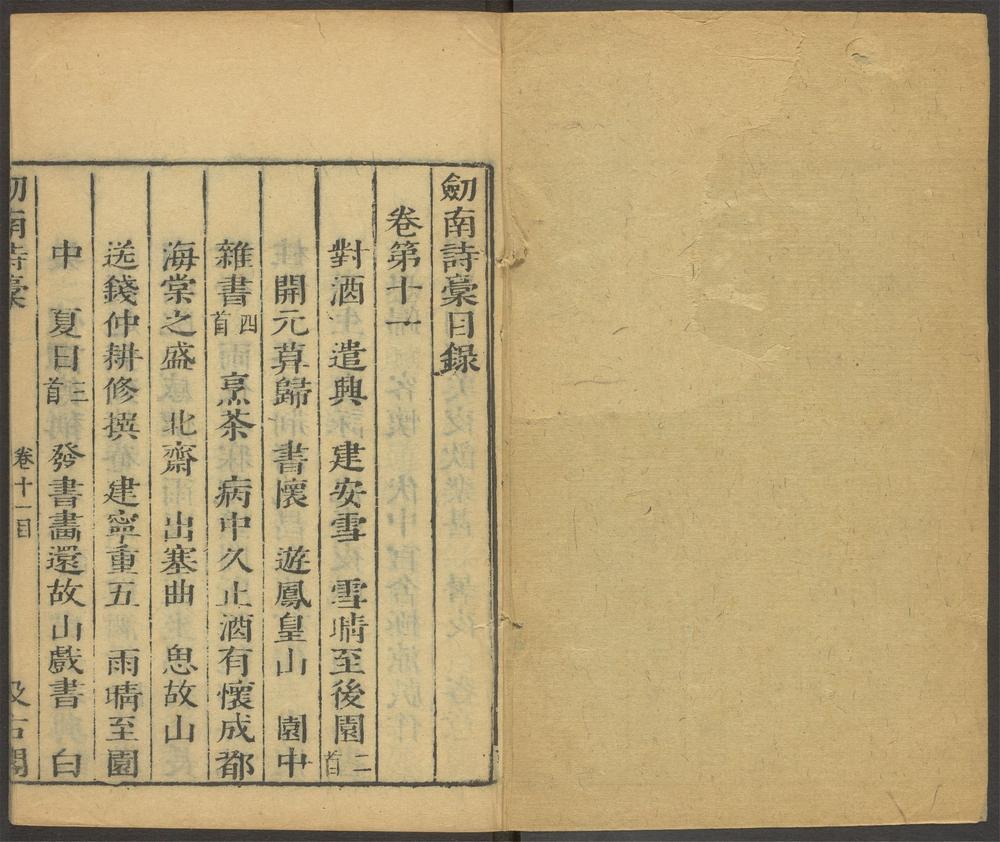 劒南詩槀目録
卷第十一
對酒 遣興 建安雪 雪晴至後園二首
開元暮歸 書懷 遊鳳皇山 園中
雜書四首 烹茶 病中久止酒有懷成都
海棠之盛 北齋 出塞曲 思故山
送錢仲耕修撰 建寧重五 雨晴至園
中 夏日三首 發書畫還故山戲書 白
劒南詩槀 卷十一目 汲古閣